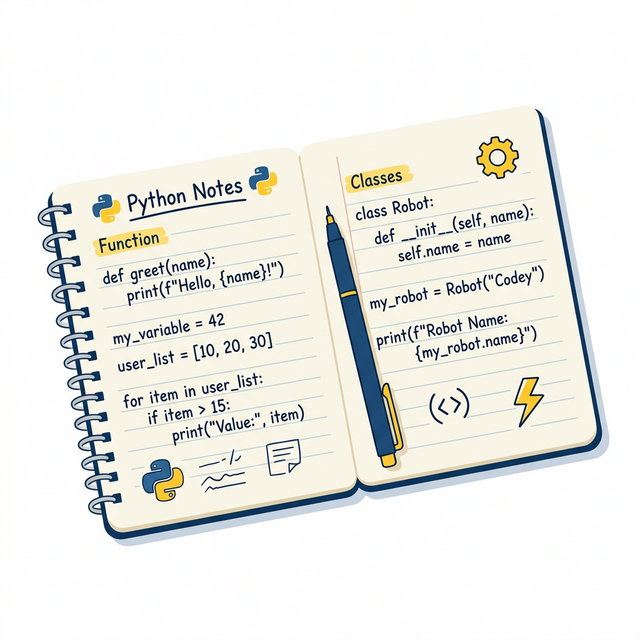 Python Notes
Function
def greet(name):
print(f"Hello, {name}!")
my_variable = 42
user_list = [10, 20, 30]
for item in user_list:
if item > 15:
print("Value:", item)
Classes
class Robot:
def __init__(self, name):
self.name = name
my_robot = Robot("Codey")
print(f"Robot Name:
{my_robot.name}")